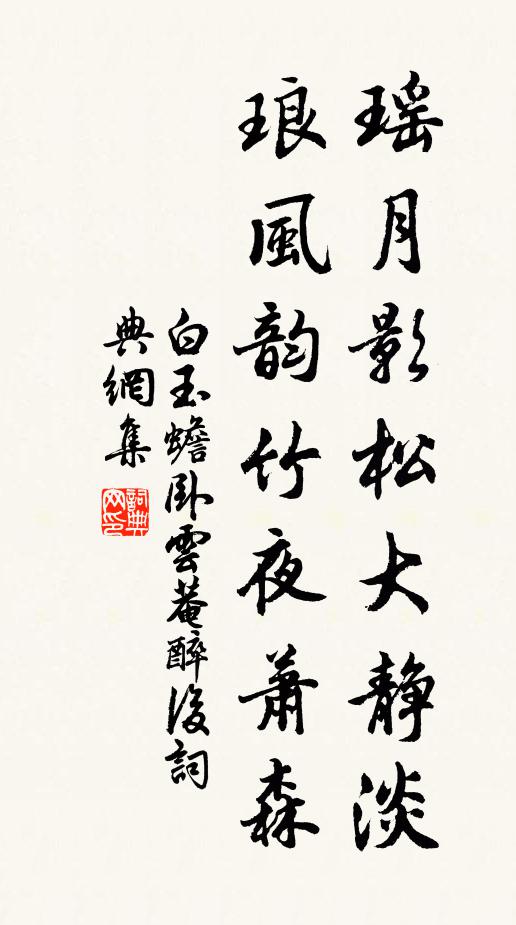 瑶月影松大静淡
琅風韵竹夜蕭森
白玉蟾卧雲菴醉後詞
典網集
詞典網印